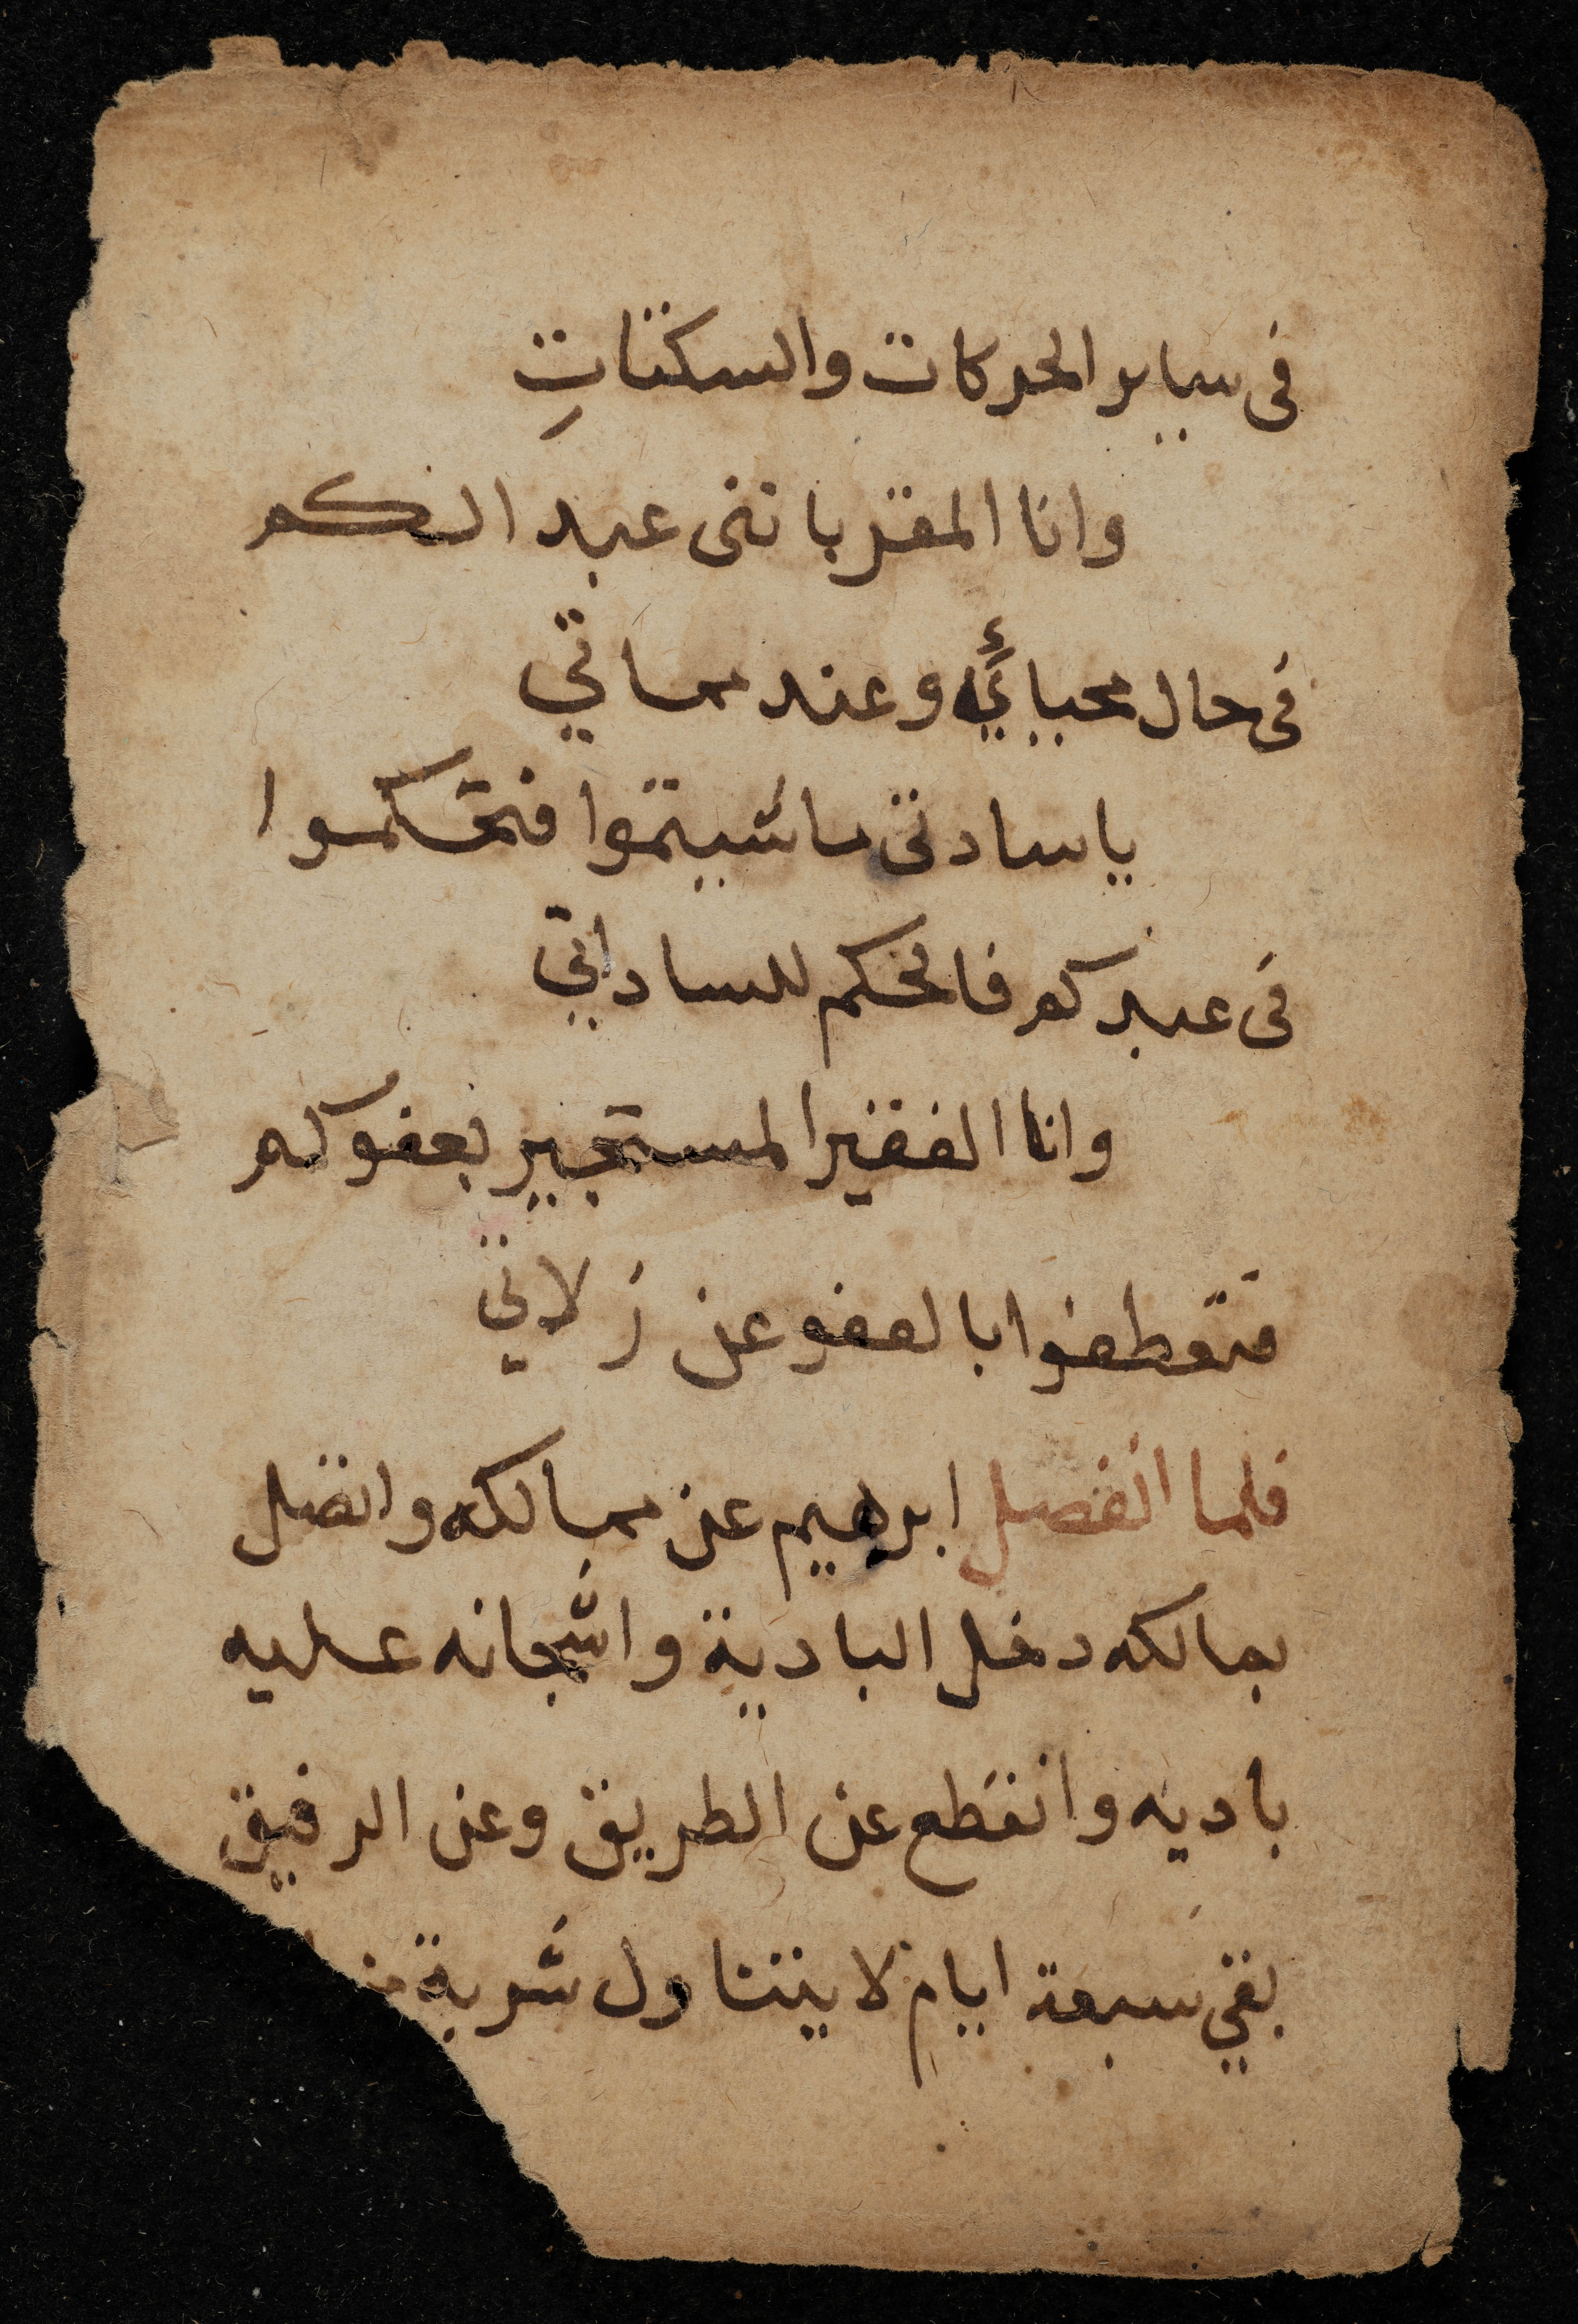 فى ساير الحركات والسكنات
وانا المقر باننى عبد الكم
فى حال محيائي وعند مماتي
يا سادتى ما شيتموا فتحكموا
فى عبدكم فالحكم للساداتي
وانا الفقير المستجير بعفوكم
فتعطفوا بالعفو عن زلاتي
فلما انفصل ابرهيم عن ممالكه واتصل
بمالكه دخل البادية واشجانه عليه
باديه وانقطع عن الطريق وعن الرفيق
بقي سبعة ايام لا يتناول شربة